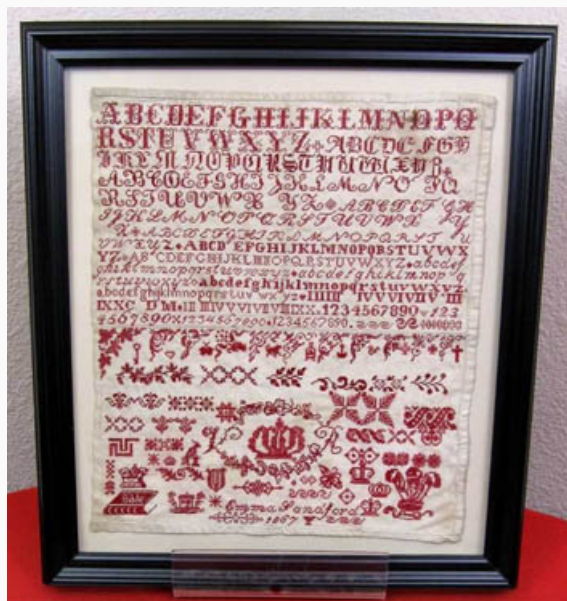 ABCDEFGHIJKLMNOPQ
RSTUVWXYZ ABCDEFGH
IJKLMNOPQRSTUVWXYZ
ABCDEFGHIJKLMNO PQ
RSTUVWXYZ ABCDEFGH
IJKLMNOPQRSTUVWX Y
Z ABCDEFGHIJKLMNOPQRST U
VWXYZ ABCDEFGHIJKLMNOPQRSTUVWX
YZ ABCDEFGHIJKLMNOPQRSTUVWXYZ abcdef
ghijklmnopqrstuvwxyz abcdefghijklmnopq
rstuvwxyz abcdefghijklmnopqrstuvwxyz
abcdefghijklmnopqrstuvwxyz
1234567890 123
4567890 1234567890 1234567890
Emma Sandford
1887